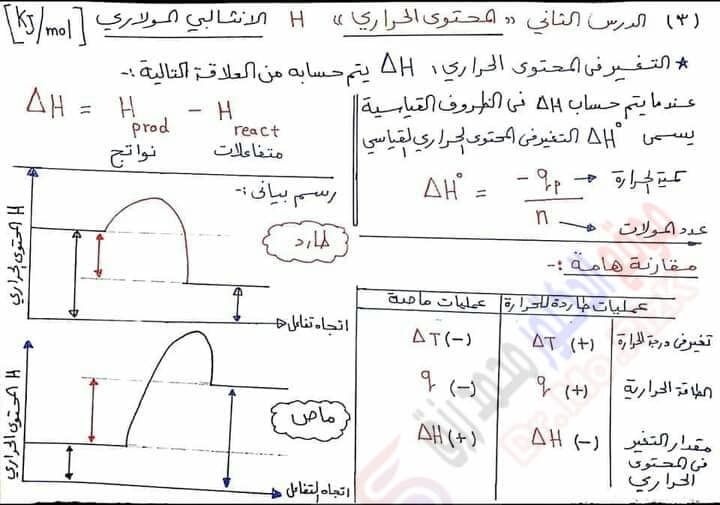 (٣) الدرس الثاني "المحتوى الحراري" H الانثالبي المولاري [KJ/mol]
* التغير فى المحتوى الحراري، ΔH يتم حسابه من العلاقة التالية :-
ΔH = H prod - H react
نواتج متفاعلات
عندما يتم حساب ΔH فى الظروف القياسية
يسمى ΔH° التغير فى المحتوى الحراري القياسي
ΔH° = - qp / n
كمية الحرارة
عدد المولات
رسم بيانى :-
طارد
المحتوى الحراري H
اتجاه تفاعل
ماص
المحتوى الحراري H
اتجاه التفاعل
مقارنة هامة :-
عمليات طاردة للحرارة عمليات ماصة
تغير فى درجة الحرارة ΔT (+) ΔT (-)
الطاقة الحرارية q (+) q (-)
مقدار التغير ΔH (-) ΔH (+)
فى المحتوى
الحراري